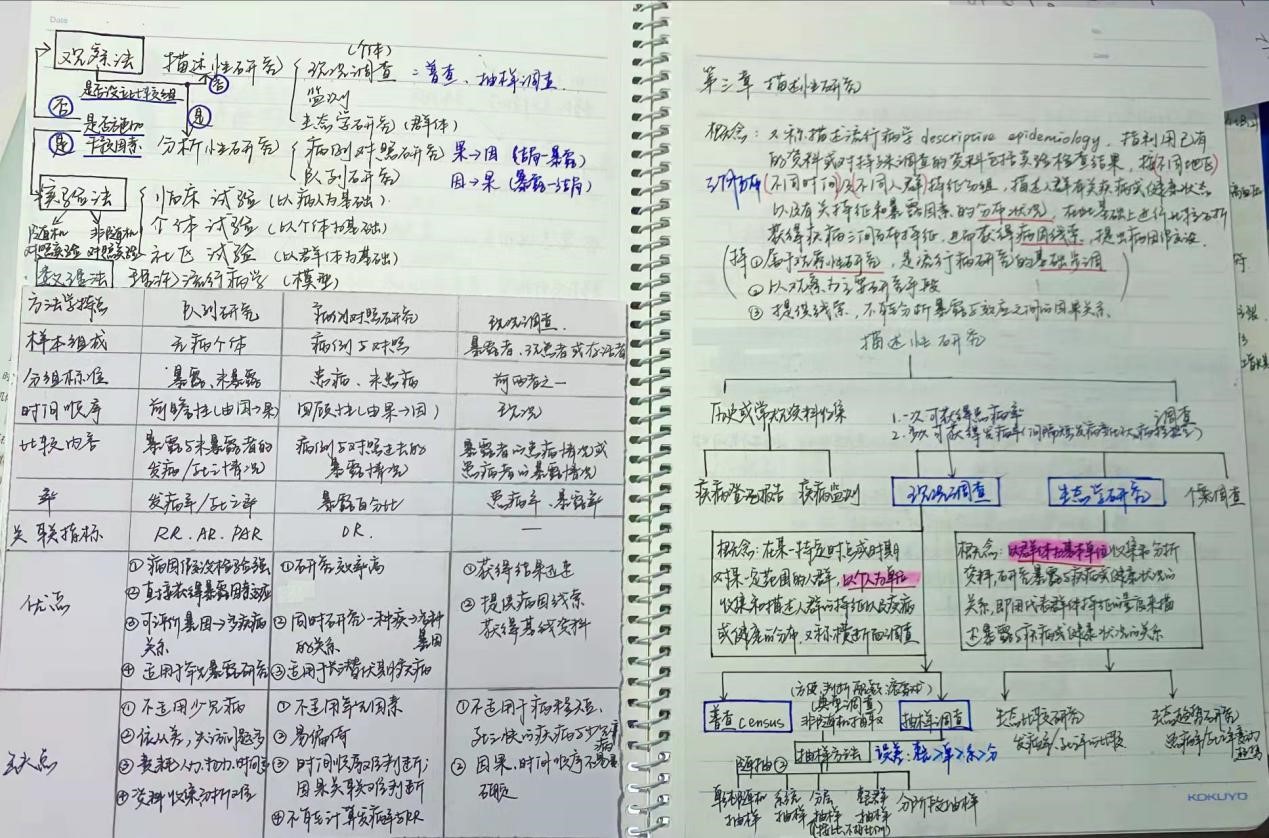 Date
观察法
描述性研究
(个体)
现况调查:普查、抽样调查
监测
生态学研究(群体)
是否设立比较组
否
是
否
是
是否施加
干预因素
分析性研究
病例对照研究 果→因(结局-暴露)
队列研究 因→果(暴露-结局)
实验法
临床试验(以病人为基础)
个体试验(以个体为基础)
社区试验(以群体为基础)
随机 非随机
对照实验 对照实验
数理法 理论流行病学(模型)
方法学特点 队列研究 病例对照研究 现况调查
样本组成 无病个体 病例与对照 暴露者、现患者或存活者
分组标准 暴露、未暴露 患病、未患病 前两者之一
时间顺序 前瞻性(由因→果) 回顾性(由果→因) 现况
比较内容 暴露与未暴露者的 病例与对照过去的 暴露者的患病情况或
发病/死亡情况 暴露情况 患病者的暴露情况
率 发病率/死亡率 暴露百分比 患病率、暴露率
关联指标 RR.AR.PAR OR. —
优点
①病因假设检验强
②直接获得暴露因素
③可评价暴因→多疾病
关系
④适用于罕见暴露研究
①研究效率高
②同时研究一种疾病→多种
的关系 暴因
③适用于长潜伏期疾病
①获得结果迅速
②提供病因线索
获得基线资料
缺点
①不适用少见病
②依从差,失访问题多
③费耗人力、物力、时间多
④资料收集分析难
①不适用罕见因素
②易偏倚
③时间顺序难判断;
因果关联难判断
④不能计算发病率与RR
①不适用于病程短、
②因果、时间顺序不易
确晓
第三章 描述性研究
概念:又称描述流行病学 descriptive epidemiology,指利用已有
的资料或对特殊调查的资料包括实验检查结果,按(不同地区)
三间分布(不同时间)及(不同人群)特征分组,描述人群有关疾病或健康状态
以及有关特征和暴露因素的分布状况,在此基础上进行比较分析
获得疾病三间分布特征,进而获得病因线索,提出病因假设.
(特①属于观察性研究,是流行病研究的基础步调
②以观察为主要研究手段
③提供线索,不能分析暴露与效应之间的因果关系.
描述性研究
历史或常规资料收集
1.一次可获得患病率
调查
疾病登记报告 疾病监测 现况调查 生态学研究 个案调查
概念:在某一特定时点或时期
对某一定范围的人群,以个人为单位
收集和描述人群的特征以及疾病
或健康的分布,又称横断面调查
概念:以群体为基本单位收集和分析
资料,研究暴露与疾病或健康状况的
关系,即用代表群体特征的量度来描
述暴露与疾病或健康状况的关系
(典型调查)
普查 census 非随机抽取 抽样调查
生态比较研究 生态趋势研究
抽样方法 误差:整>单>系>分
单纯随机 系统 分层 整群 分阶段抽样
抽样 抽样 抽样 抽样
KOKUYO